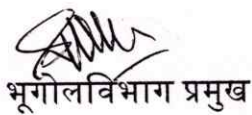 भूगोलविभाग प्रमुख